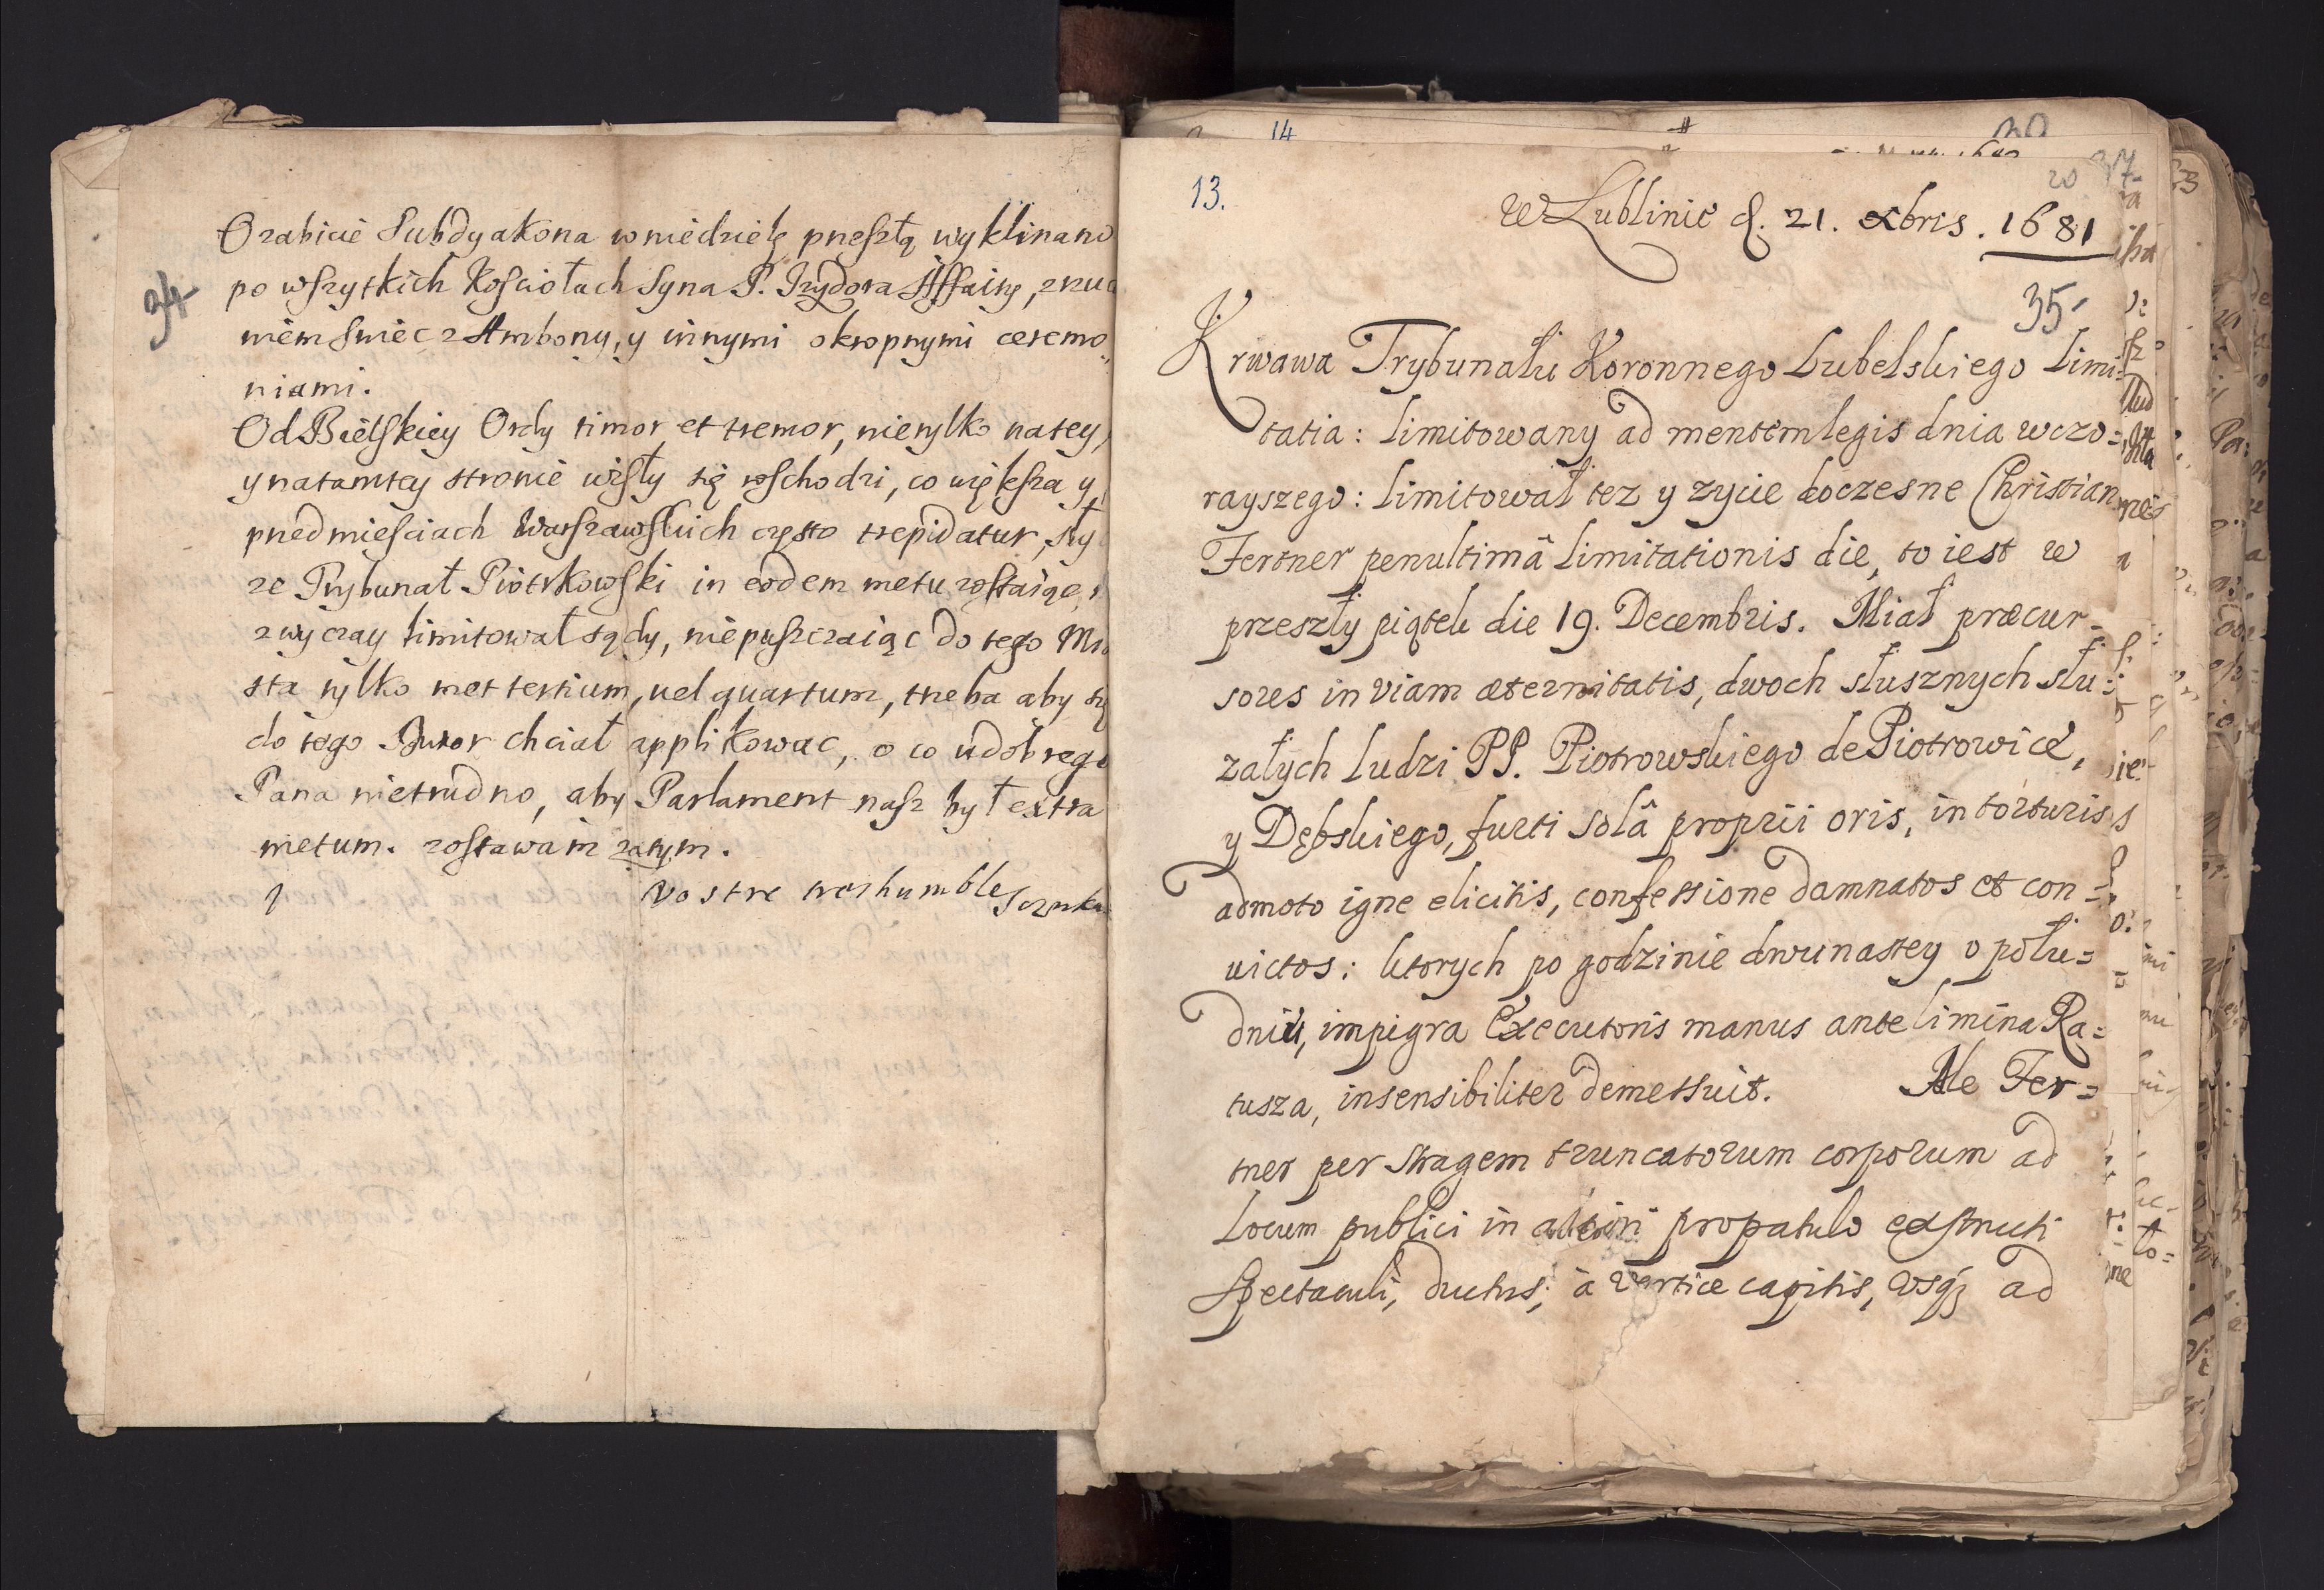 34
Ozabicie Subdyakona w niedzielę pneszłą wyklinano
po wszytkich Kościołach Syna P. Izydora Affaitę, zruc
niem swiec z Ambony, y innymi okropnymi ceremo„
niami.
Od Bielskiey Ordy timor et tremor, nietylko natey,
y natamtey stronie wisły się woschodzi, co większa y
pnedmieściach Warszawskich często trepidatur, sły
ze Trybunał Piotrkowski in eodem metu zostaiąc,
zwyczay limitował sądy, niepuszczaiąc do tego Mia
sta tylko met tertium, vel quartum, tneba aby się
do tego Autor chciał applikowac, o co u dobrego
Pana nietrudno, aby Parlament nasz był extra
metum. zostawam zatym.
Vostre treshumble Sczuka
14
20
13.
20 37
w Lublinie d. 21. Xbris. 1681
35
Krwawa Trybunału Koronnego Lubelskiego Limi=
tatia: limitowany ad mentem legis dnia wczo=
rayszego: limitował tez y zycie doczesne Christian
Fertner penultimâ limitationis die, to iest w
przeszły piątek die 19. Decembris. Miał præcur=
sores in viam æternitatis, dwoch słusznych słu=
załych ludzi PP. Piotrowskiego de Piotrowice,
y Dębskiego, furti solâ proprii oris, in torturis
admoto igne elicitis, confessione damnatos et con=
victos: ktorych po godzinie dwunastey o połu=
dniu, impigra Executoris manus ante limina Ra=
tusza, insensibiliter demessuit. Ale Fer=
tner per stragem truncatorum corporum ad
locum publici in altiori propatulo exstructi
Spectaculi, ductus; à vertice capitis, usq3 ad